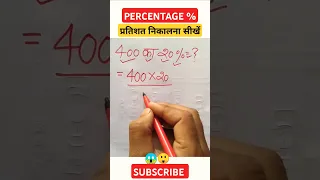 PERCENTAGE %
प्रतिशत निकालना सीखें
400 का 20 % = ?
= 400 × 20
SUBSCRIBE